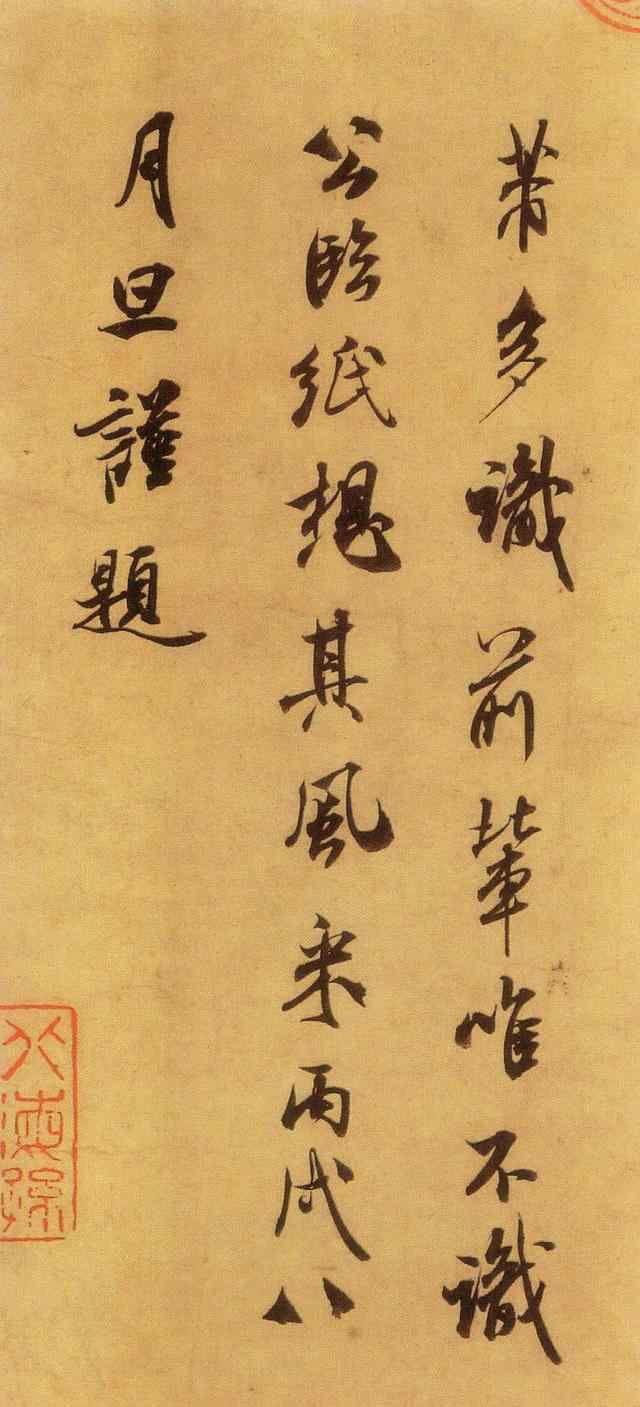 芾多識前輩唯不識
公臨紙想其風采丙戌八
月旦謹題